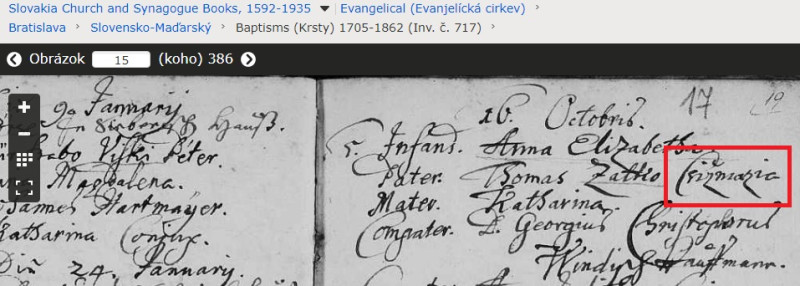 Slovakia Church and Synagogue Books, 1592-1935 Evangelical (Evanjelícká cirkev)
Bratislava Slovensko-Maďarský Baptisms (Krsty) 1705-1862 (Inv. č. 717)
Obrázok 15 (koho) 386
Januarij
Hauß.
Péter.
Magdalena.
James Hartmayer.
Katharina Conjux.
Diñ 24. Januarij.
17 19
16. Octobris.
5. Infans. Anna Elizabetha
Pater. Thomas Zattlo Csizmazia
Mater. Katharina.
Compater. D. Georgius Christophorus
Windisch Kauffmann.